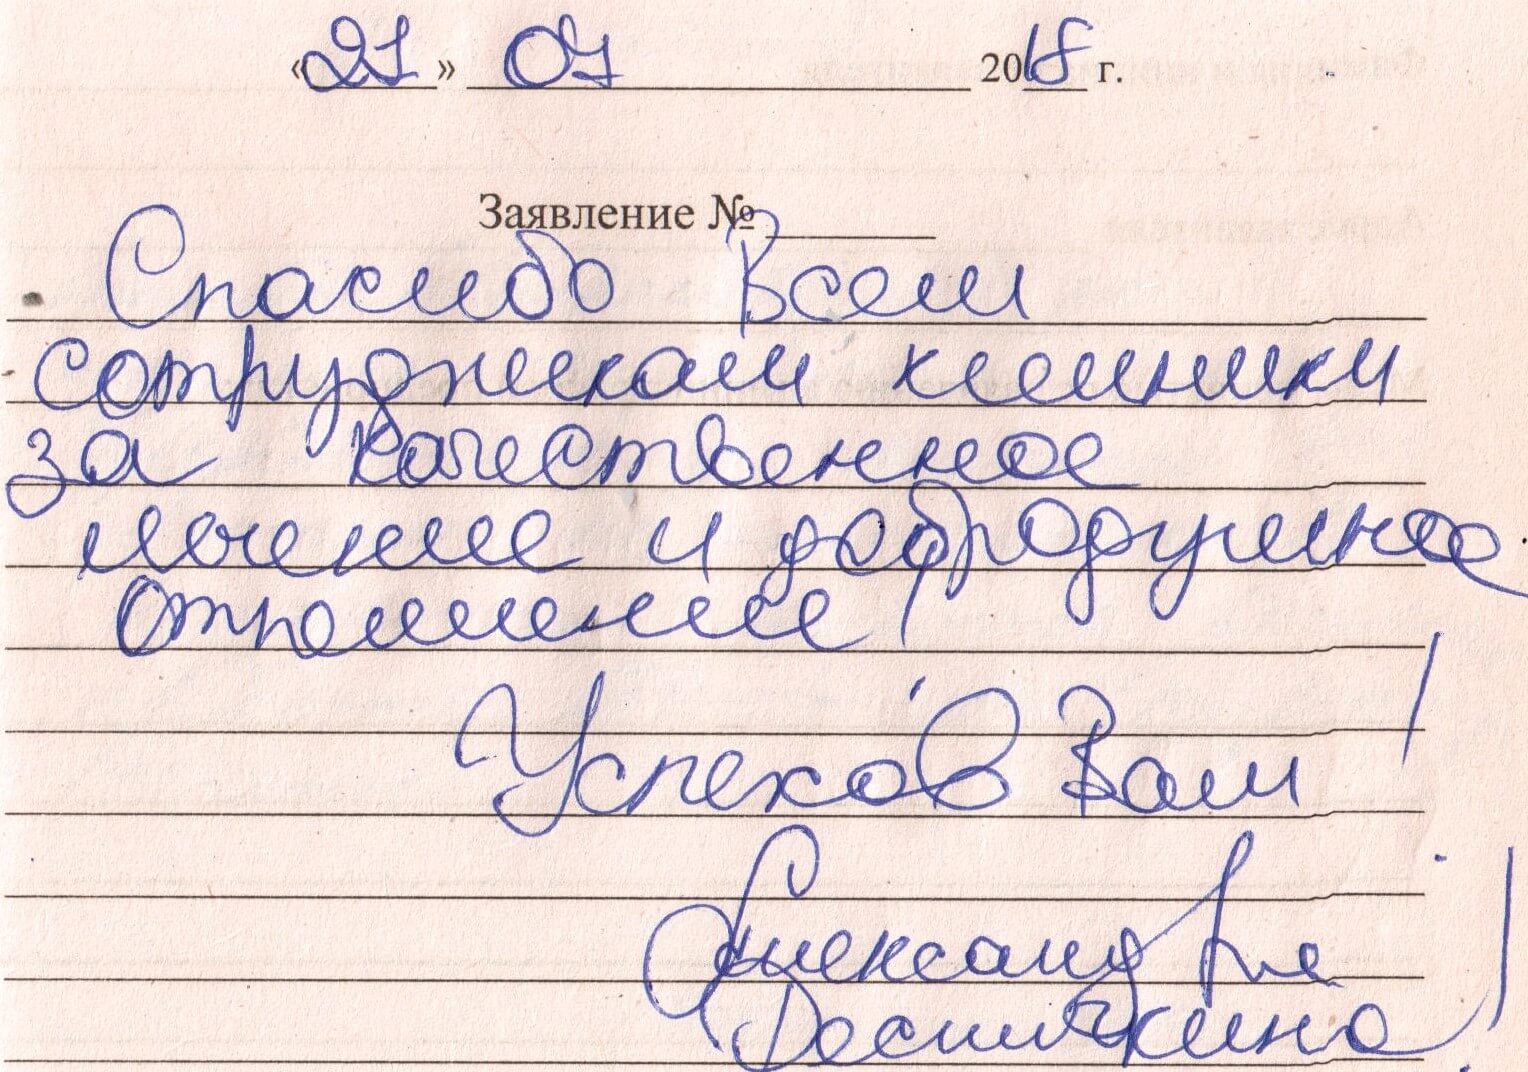 «21» 07 2018 г.
Заявление № ______
Спасибо Всем
сотрудникам клиники
за качественное
лечение и добродушное
отношение!
Успехов Вам!